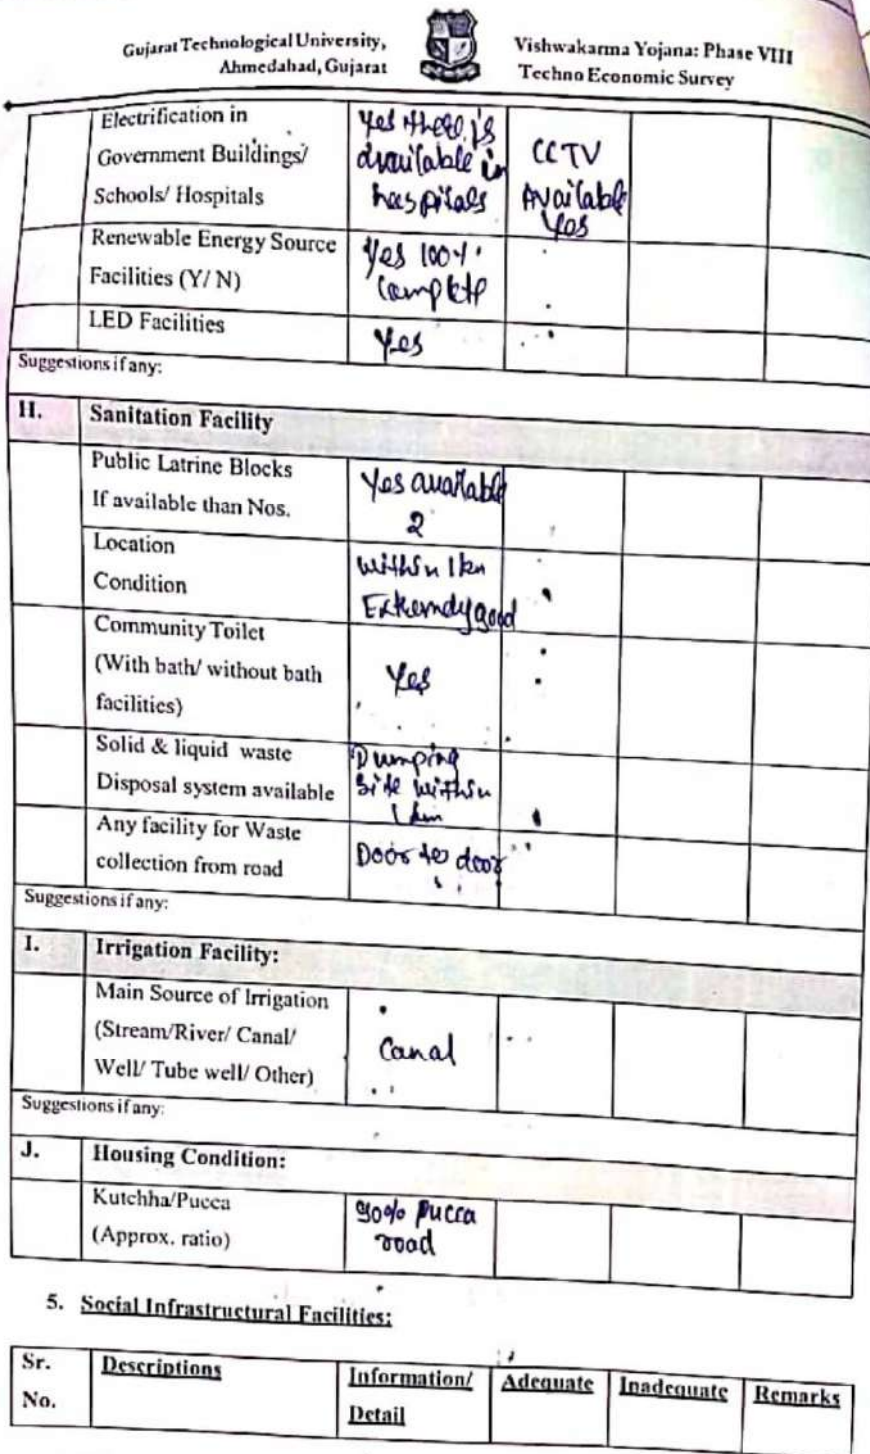 Gujarat Technological University,
Ahmedabad, Gujarat
Vishwakarma Yojana: Phase VIII
Techno Economic Survey
Electrification in
Government Buildings/
Schools/ Hospitals
Yes there is
available in
hospitals
CCTV
Available
Yes
Renewable Energy Source
Facilities (Y/ N)
Yes 100%
Complete
LED Facilities
Yes
Suggestions if any:
H. Sanitation Facility
Public Latrine Blocks
If available than Nos.
Yes available
2
Location
Condition
within 1km
Extremely good
Community Toilet
(With bath/ without bath
facilities)
Yes
Solid & liquid waste
Disposal system available
Dumping
site within
1 km
Any facility for Waste
collection from road
Door to door
Suggestions if any:
I. Irrigation Facility:
Main Source of Irrigation
(Stream/River/ Canal/
Well/ Tube well/ Other)
Canal
Suggestions if any:
J. Housing Condition:
Kutchha/Pucca
(Approx. ratio)
90% pucca
road
5. Social Infrastructural Facilities:
Sr.
No.
Descriptions
Information/
Detail
Adequate
Inadequate
Remarks